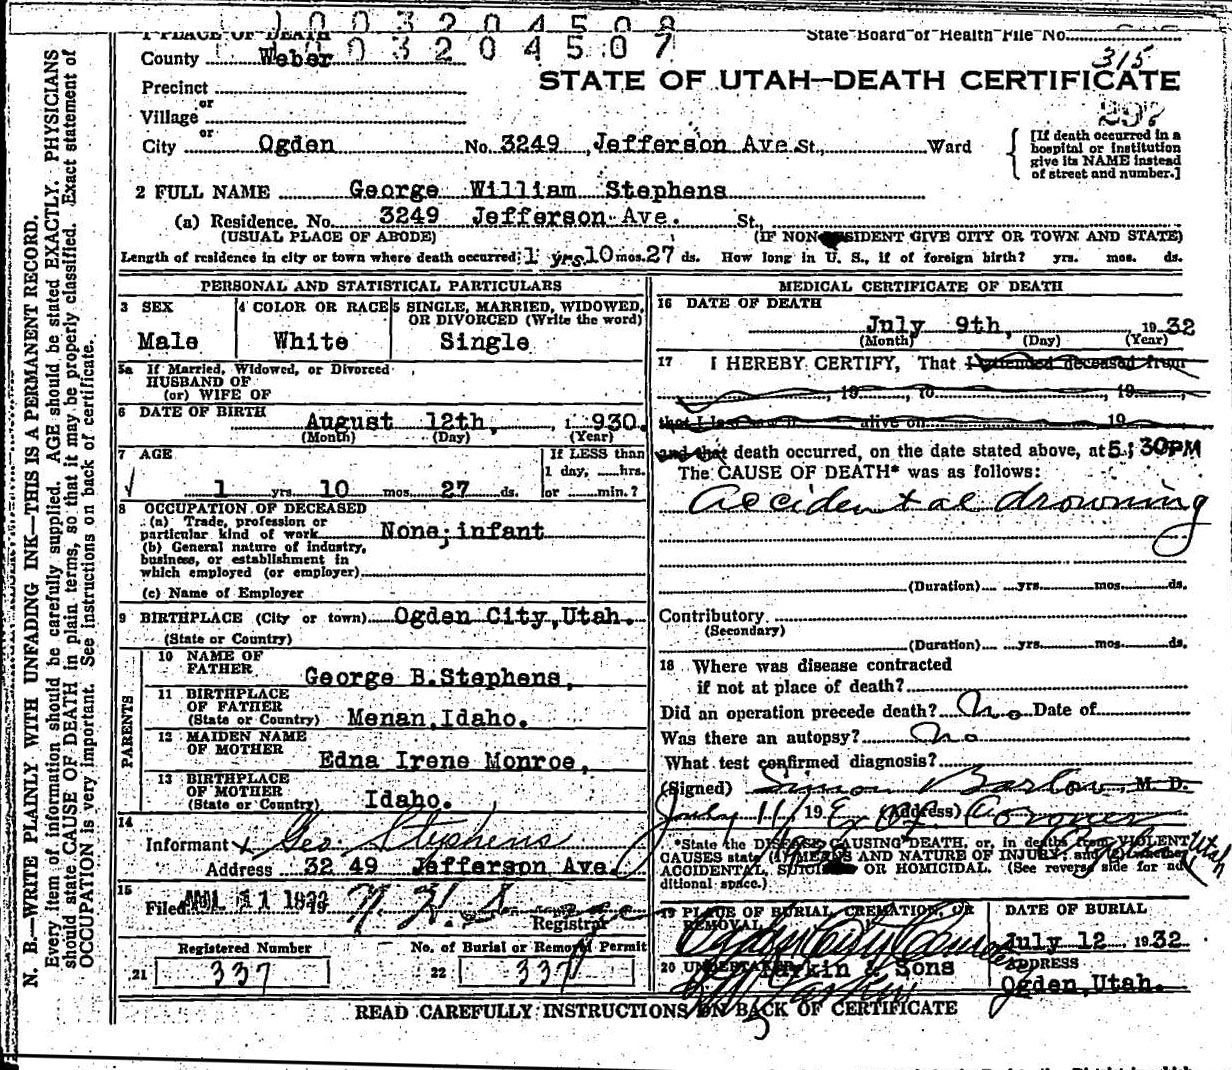 1003204508
1 PLACE OF DEATH
State Board of Health File No.
1003204507
County Weber
315
STATE OF UTAH—DEATH CERTIFICATE
Precinct
or
Village
297
or
City Ogden No. 3249 Jefferson Ave. St., Ward
[If death occurred in a
hospital or institution
give its NAME instead
of street and number.]
2 FULL NAME George William Stephens
(a) Residence, No. 3249 Jefferson Ave. St.
(USUAL PLACE OF ABODE) (IF NON RESIDENT GIVE CITY OR TOWN AND STATE)
Length of residence in city or town where death occurred 1 yrs. 10 mos. 27 ds. How long in U. S., if of foreign birth? yrs. mos. ds.
PERSONAL AND STATISTICAL PARTICULARS
3 SEX
Male
4 COLOR OR RACE
White
5 SINGLE, MARRIED, WIDOWED,
OR DIVORCED (Write the word)
Single
5a If Married, Widowed, or Divorced
HUSBAND OF
(or) WIFE OF
6 DATE OF BIRTH
August 12th, 1930.
(Month) (Day) (Year)
7 AGE
If LESS than
1 day, hrs.
1 yrs. 10 mos. 27 ds. or min.?
8 OCCUPATION OF DECEASED
(a) Trade, profession or
particular kind of work None; infant
(b) General nature of industry,
business, or establishment in
which employed (or employer)
(c) Name of Employer
9 BIRTHPLACE (City or town) Ogden City, Utah.
(State or Country)
PARENTS
10 NAME OF
FATHER George B. Stephens,
11 BIRTHPLACE
OF FATHER
(State or Country) Menan, Idaho.
12 MAIDEN NAME
OF MOTHER Edna Irene Monroe,
13 BIRTHPLACE
OF MOTHER
(State or Country) Idaho.
14
Informant Geo. Stephens
Address 3249 Jefferson Ave.
15
Filed JUL 11 1932
Registrar
Registered Number No. of Burial or Removal Permit
21 337 22 337
MEDICAL CERTIFICATE OF DEATH
16 DATE OF DEATH
July 9th, 1932
(Month) (Day) (Year)
17 I HEREBY CERTIFY, That I attended deceased from
, 19 , to , 19 ,
that I last saw h alive on 19
and that death occurred, on the date stated above, at 5:30PM
The CAUSE OF DEATH* was as follows:
Accidental drowning
(Duration) yrs. mos. ds.
Contributory
(Secondary)
(Duration) yrs. mos. ds.
18 Where was disease contracted
if not at place of death?
Did an operation precede death? No Date of
Was there an autopsy? No
What test confirmed diagnosis?
(Signed) Simon Barlow M. D.
July 11, 19 (Address) Coroner
Utah
*State the DISEASE CAUSING DEATH, or, in deaths from VIOLENT
CAUSES state (1) MEANS AND NATURE OF INJURY; and (2) whether
ACCIDENTAL, SUICIDAL OR HOMICIDAL. (See reverse side for ad-
ditional space.)
19 PLACE OF BURIAL, CREMATION, OR
REMOVAL
Ogden City Cemetery
DATE OF BURIAL
July 12 1932
20 UNDERTAKER Larkin & Sons
ADDRESS
Ogden, Utah.
READ CAREFULLY INSTRUCTIONS ON BACK OF CERTIFICATE
N. B.—WRITE PLAINLY WITH UNFADING INK—THIS IS A PERMANENT RECORD.
Every item of information should be carefully supplied. AGE should be stated EXACTLY. PHYSICIANS
should state CAUSE OF DEATH in plain terms, so that it may be properly classified. Exact statement of
OCCUPATION is very important. See instructions on back of certificate.